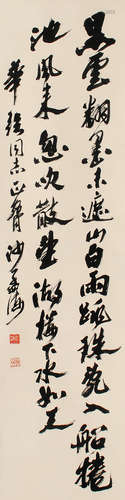 黑雲翻墨未遮山白雨跳珠亂入船捲
地風來忽吹散望湖樓下水如天
華 同志正 沙孟海